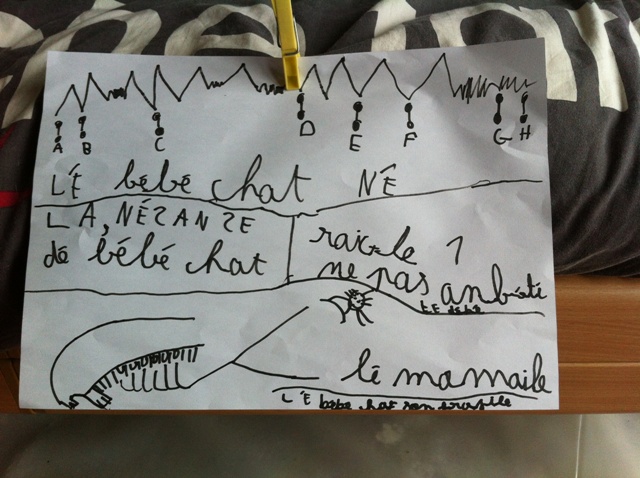 A B C D E F G H
LÉ bébé chat NÉ
LA, NÉSANSE
dé bébé chat
raigle 1
ne pas anbété
LE bébé
lé mamaile
LÉ bébé chat son